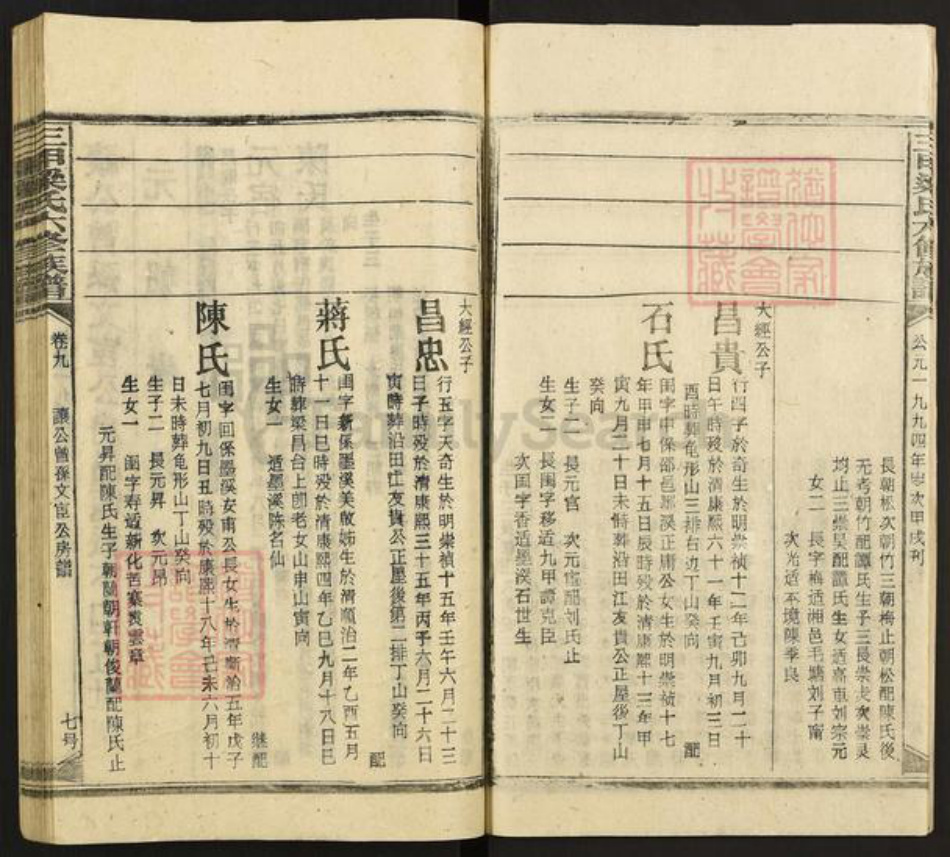 公元一九九四年岁次甲戌刊
長朝松次朝竹三朝梅止朝松配陳氏後
无考朝竹配譚氏生子三長崇 次崇灵
均止三崇吴配譚氏生女适高車刘宗元
女二 長字梅适湘邑毛塘刘子甯
次光适不境陳季良
大經公子
昌貴
行四子於奇生於明崇禎十二年己卯九月二十
日午時殁於清康熙六十一年壬寅九月初三日
酉時葬龟形山三排右边丁山癸向 配
石氏
闺字中保邵邑墨溪正庸公女生於明崇禎十七
年甲申七月十五日辰時殁於清康熙十三年甲
寅九月二十日未時葬沿田江友貴公正屋後丁山
癸向
生子二 長元官 次元 配刘氏止
生女二 長闺字移适九甲譚克臣
次闺字香适墨溪石世生
大經公子
昌忠
行五字天奇生於明崇禎十五年壬午六月二十三
日子時殁於清康熙三十五年丙子六月二十六日
寅時葬沿田江友貴公正屋後第二排丁山癸向
配
蔣氏
闺字新保墨溪美敢姊生於清順治二年乙酉五月
十一日巳時殁於清康熙四年乙巳九月十八日巳
時葬梁昌台上卽老女山申山寅向
生女一 适墨溪陈名仙
継配
陳氏
闺字回保墨溪安甫公長女生於清順治五年戊子
七月初九日丑時殁於康熙十八年己未六月初十
日未時葬龟形山丁山癸向
生子二 長元昇 次元昂
生女一 闺字寿适新化苦寨袁雲章
元昇配陳氏生子朝蘭朝軒朝俊蘭配陳氏止
三甲梁氏六修族譜
卷九
讓公曾孫文宦公房譜
七号